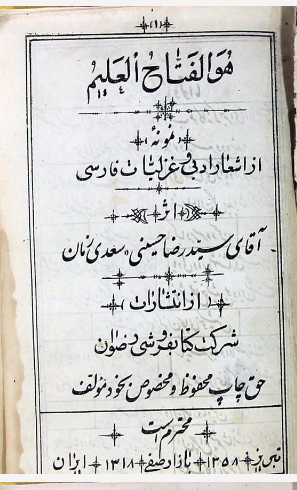 (۱)
هُوَ الفَتّاحُ العَلیمُ
(نمونهٔ)
از اشعار ادبی و غزلیات فارسی
(اثر)
آقای سیّد رضا حسینی «سعدی زمان
(از انتشارات)
شرکت کتابفروشی رضوان
حق چاپ محفوظ و مخصوص بخود مؤلف
محترم است
تبریز ۱۳۵۸ بازار صفی ۱۳۱۸ ایران